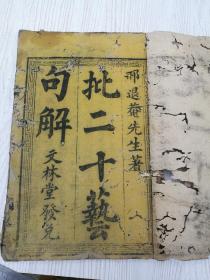 邢退菴先生著
批二十藝
句解
天林堂發兌